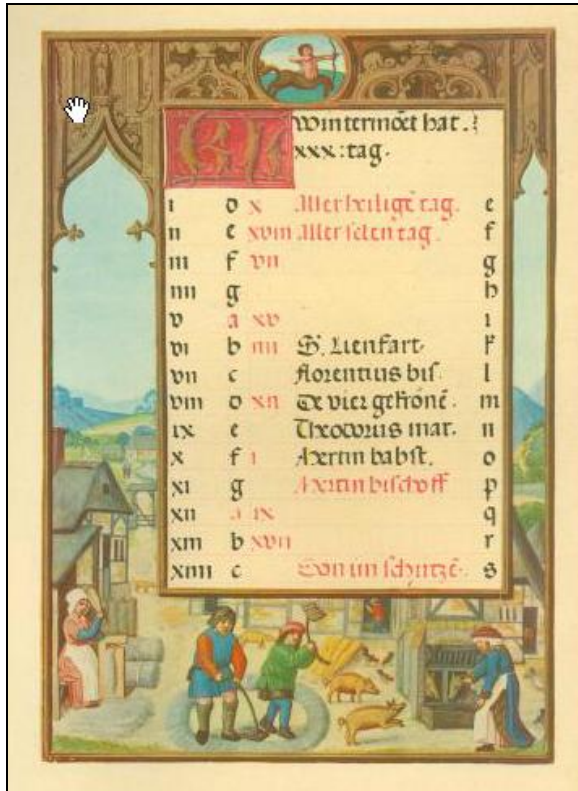 KL wintermõet hat.
xxx : tag.
i d x Aller heiligẽ tag. e
ii e xviii Aller selen tag. f
iii f vii g
iiii g h
v a xv i
vi b iiii S. Lienhart. k
vii c florentius bis. l
viii d xii De vier gekrönẽ. m
ix e Theodorus mar. n
x f i Mertin babst. o
xi g Mertin bischoff p
xii a ix q
xiii b xvii r
xiiii c Son im schützẽ. s